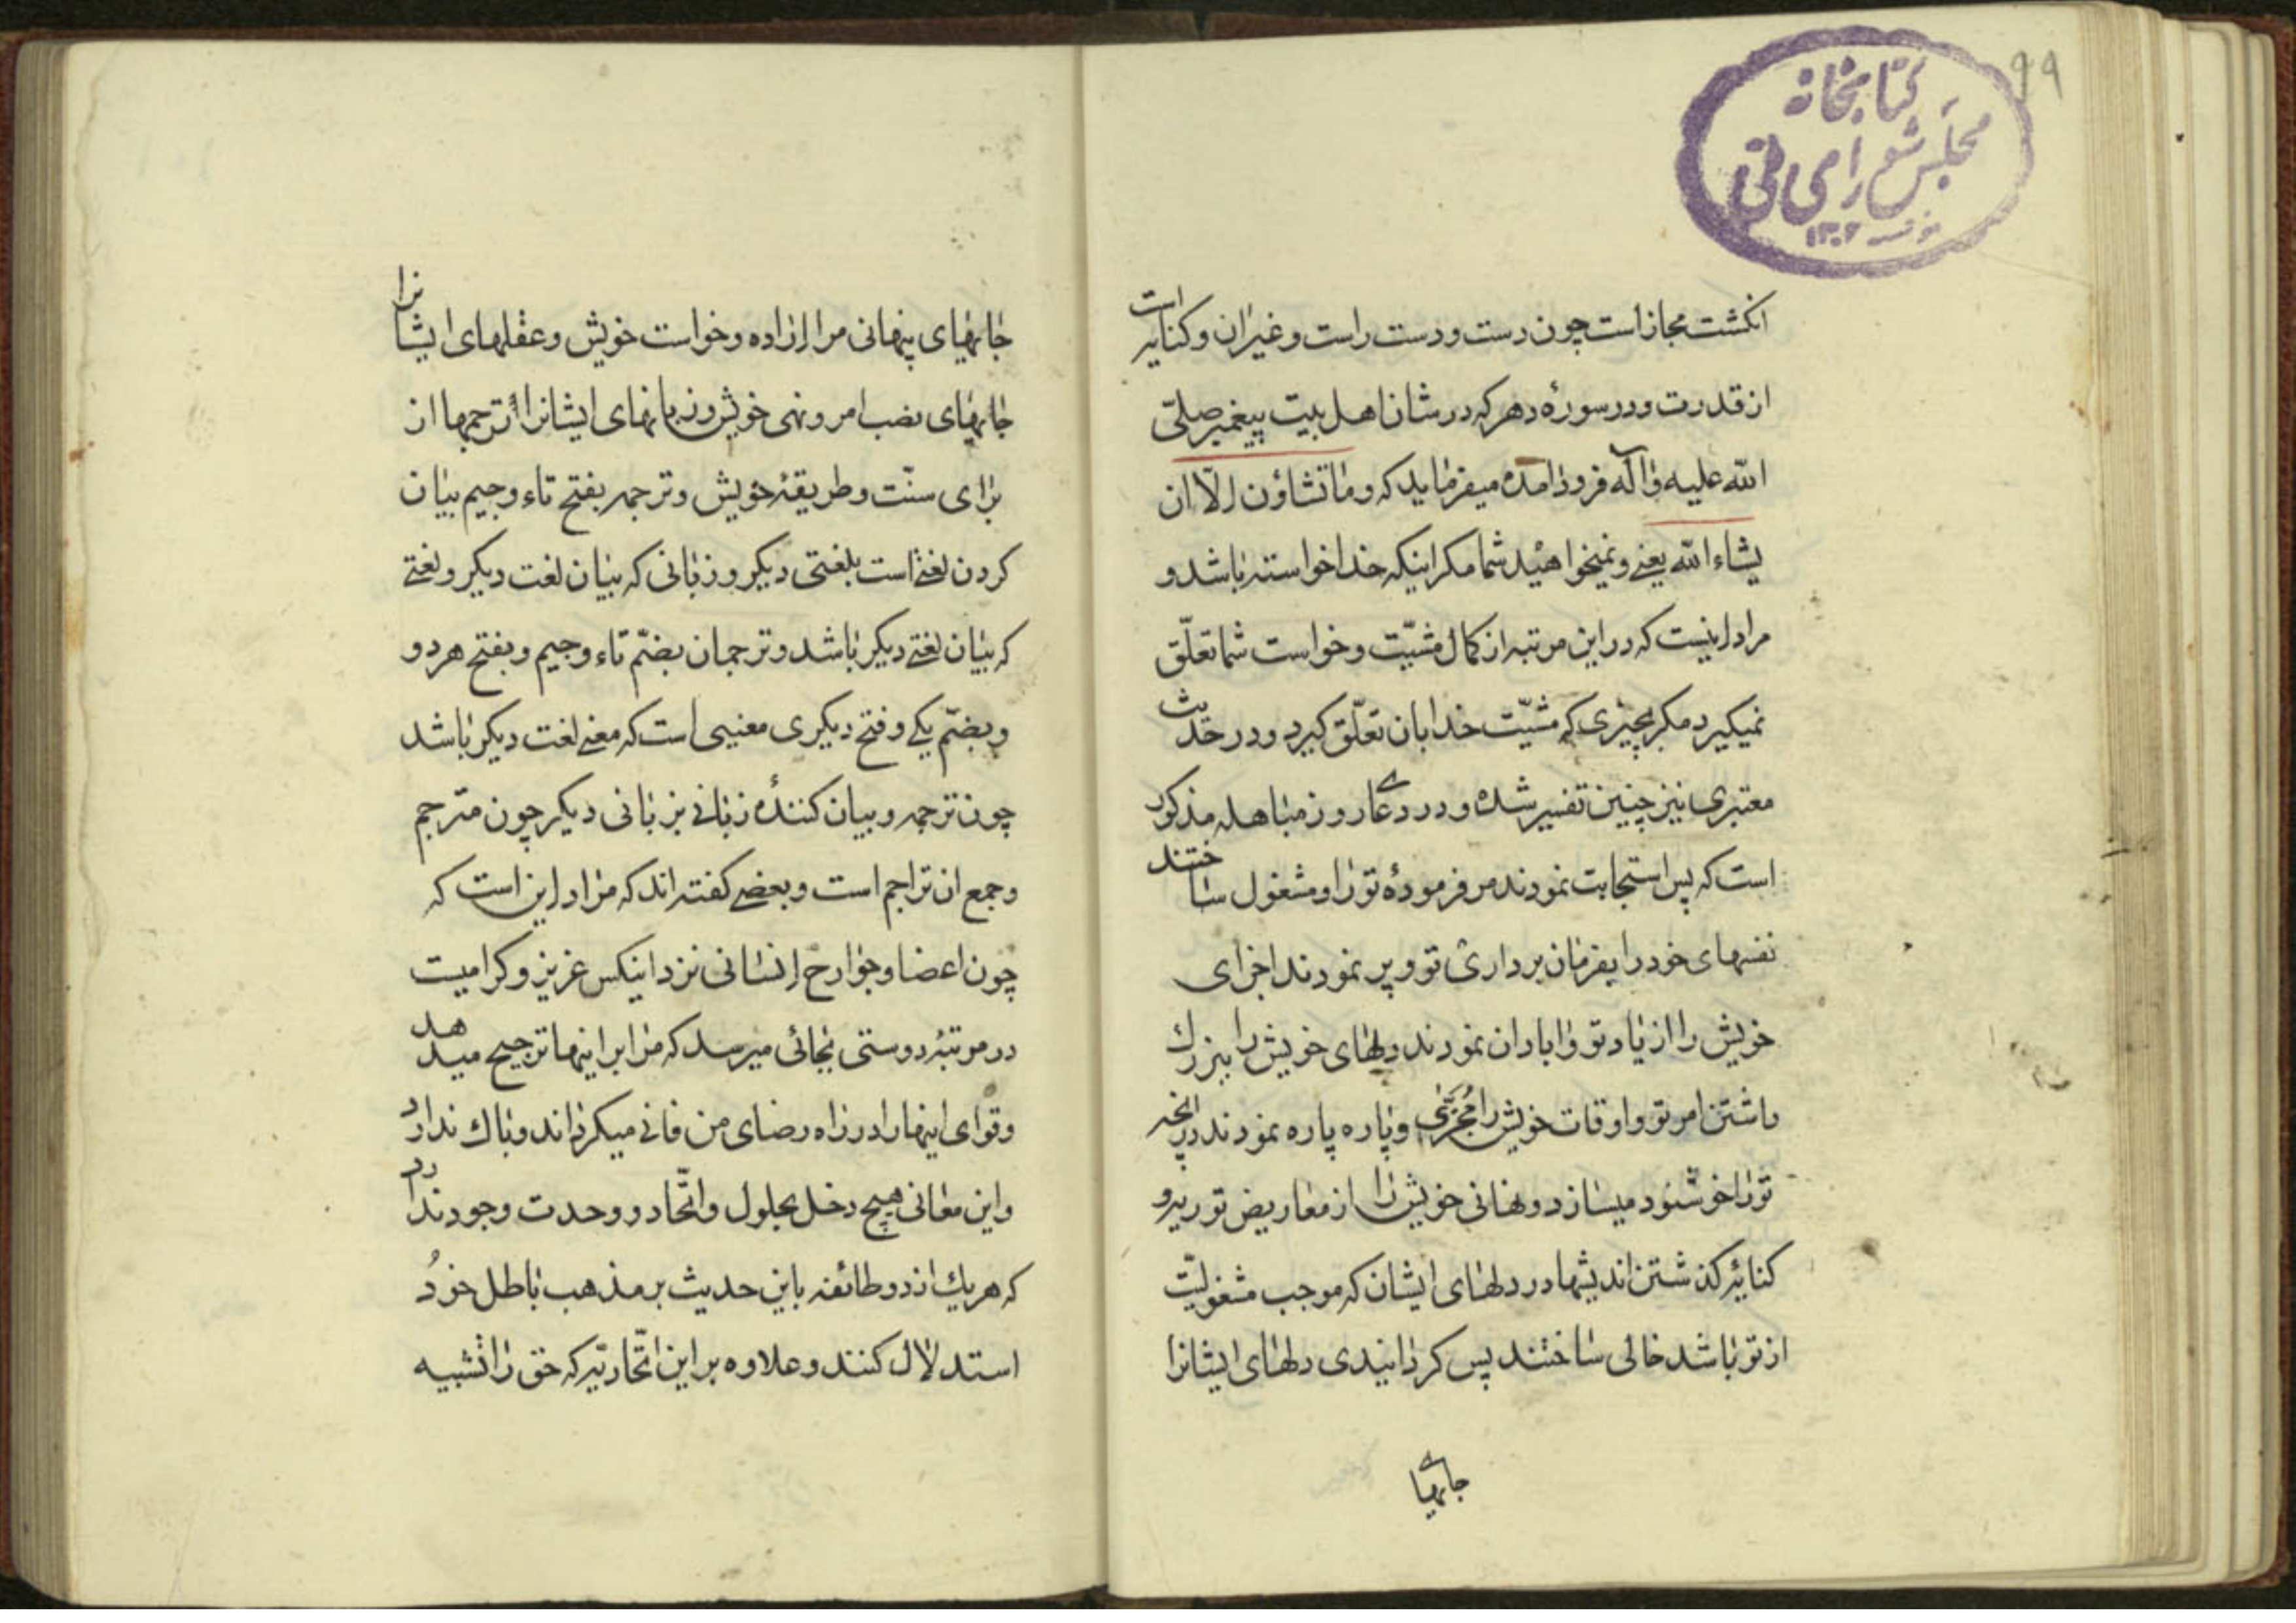 ۹۹
کتابخانه
مجلس شورای ملی
۱۳۰۲
انکشت مجاز است چون دست و دست راست و غیر ان و کنایه است
از قدرت و در سورهٔ دهر که در شان اهل بیت پیغمبر صلّی
الله علیه و اله فرود امده میفرماید که وما تشاؤن الّا ان
یشاء الله یعنی و نمیخواهید شما مکر اینکه خدا خواسته باشد و
مراد اینست که در این مرتبه از کمال مشیّت و خواست شما تعلّق
نمیکیرد مکر بچیزی که مشیّت خدا بان تعلّق کیرد و در حدیث
معتبری نیز چنین تفسیر شده و در دعای روز مباهله مذکور
است که پس استجابت نمودند مر فرمودهٔ تو را و مشغول ساختند
نفسهای خود را بفرمان برداری تو و پر نمودند اجزای
خویش را از یاد تو و ابادان نمودند دلهای خویش را ببزرك
داشتن امر تو و اوقات خویش را مُجَزّی و پاره پاره نمودند در انچه
تو را خوشنود میسازد و نهانی خویش را از معاریض توریه و
کنایهٔ کذشتن اندیشها در دلهای ایشان که موجب مشغولیّت
از تو باشد خالی ساختند پس کردانیدی دلهای ایشانرا
جایهای
جایهای پنهانی مر اراده و خواست خویش و عقلهای ایشانرا
جایهای نصب امر و نهی خویش و زبانهای ایشانرا ترجمها از
برای سنّت و طریقهٔ خویش و ترجمه بفتح تاء و جیم بیان
کردن لغتی است بلغتی دیکر و زبانی که بیان لغت دیکر و لغتی
که بیان لغتی دیکر باشد و ترجمان بضمّ تاء و جیم و بفتح هر دو
و بضمّ یکی و فتح دیکری معنیی است که معنی لغت دیکر باشد
چون ترجمه و بیان کنندهٔ زبانی بزبانی دیکر چون مترجم
و جمع ان تراجم است و بعضی کفته اند که مراد این است که
چون اعضا و جوارح انسانی نزد اینکس عزیز و کرامیست
در مرتبهٔ دوستی بجائی میرسد که مرا بر اینها ترجیح میدهد
و قوای اینها را در راه رضای من فانی میکرداند و باك ندارد
و این معانی هیچ دخل بحلول و اتّحاد و وحدت وجود ندارد
که هر یك از دو طائفه باین حدیث بر مذهب باطل خود
استدلال کنند و علاوه بر این اتّحادیّه که حق را تشبیه